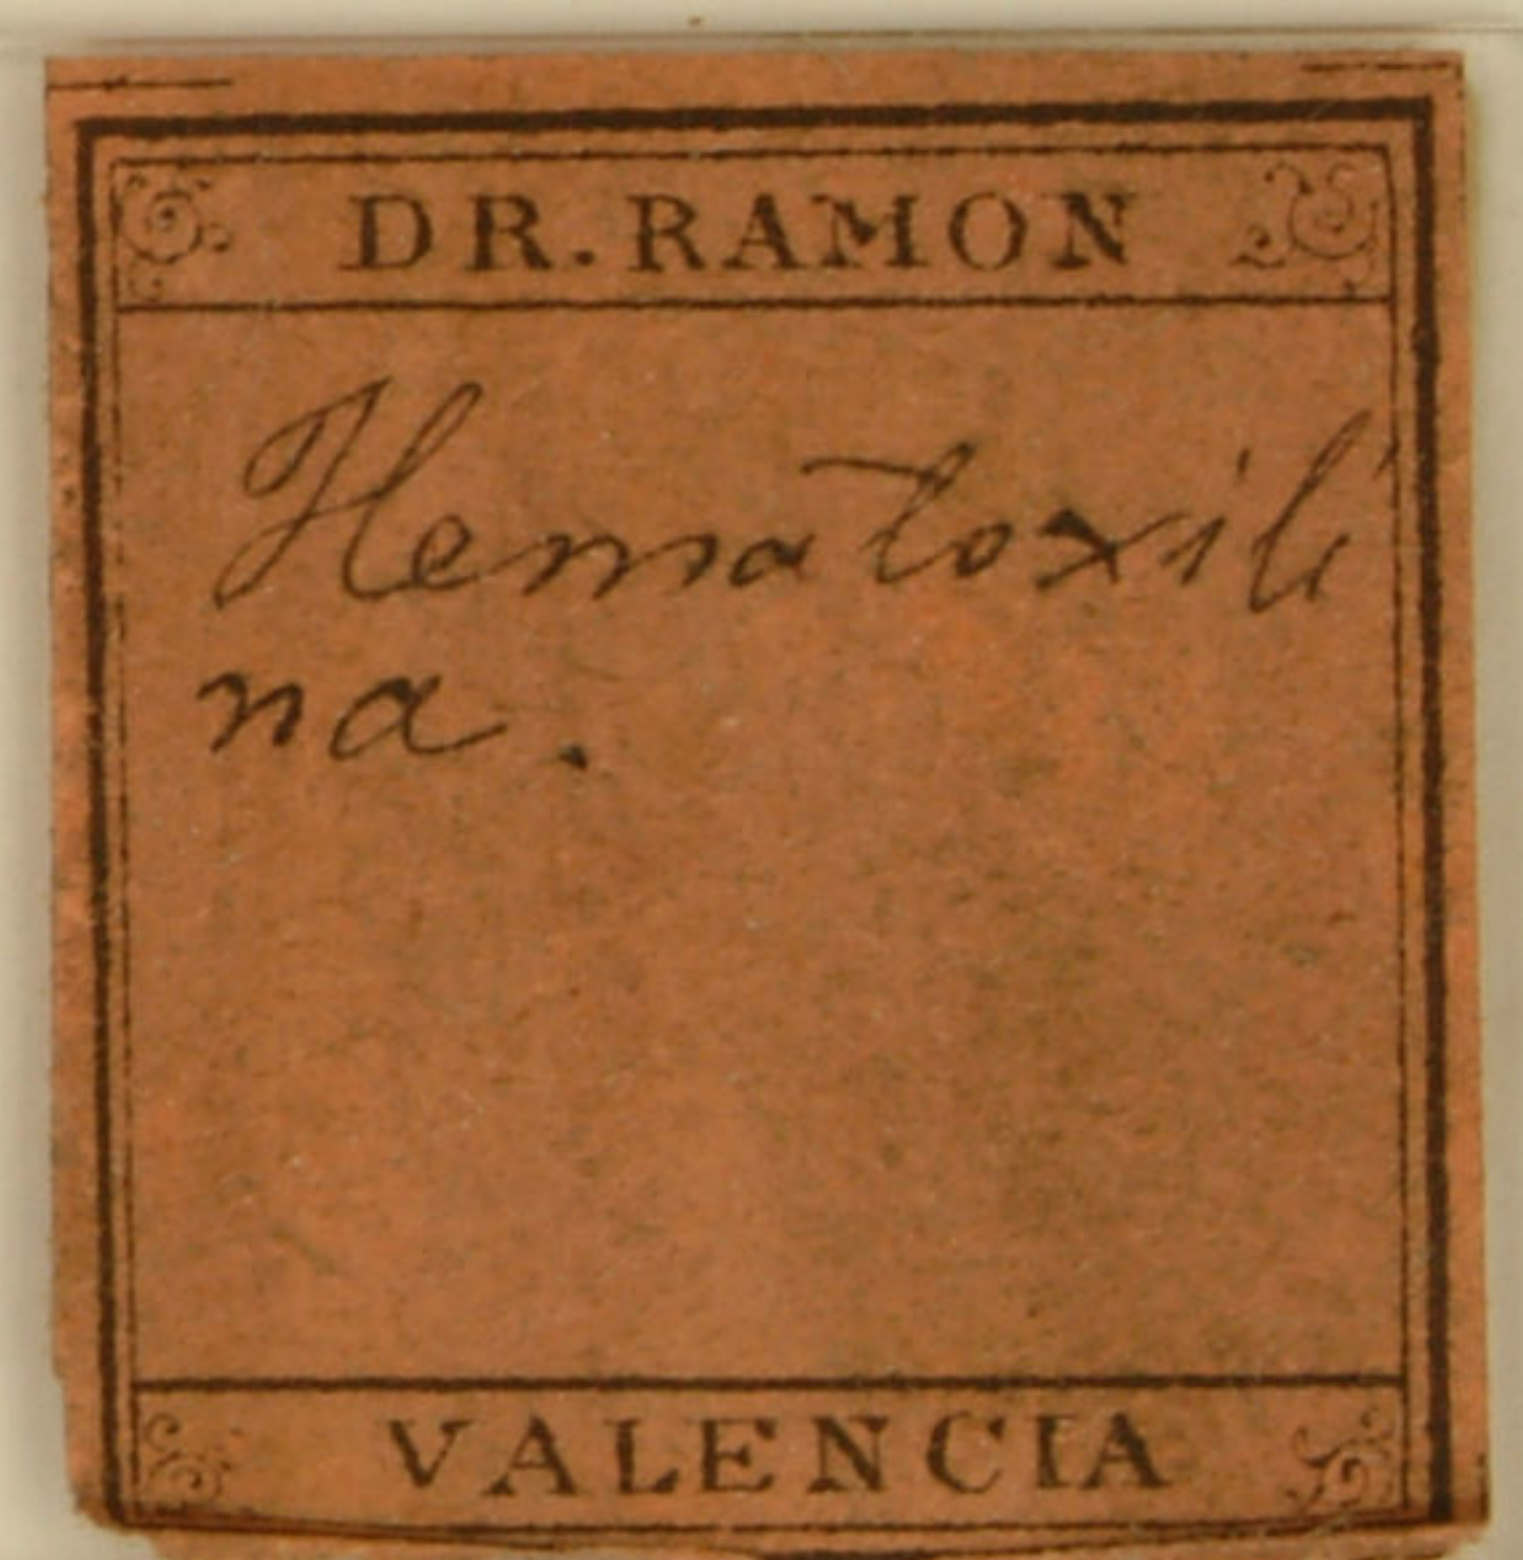 DR. RAMON
Hematoxili
na.
VALENCIA